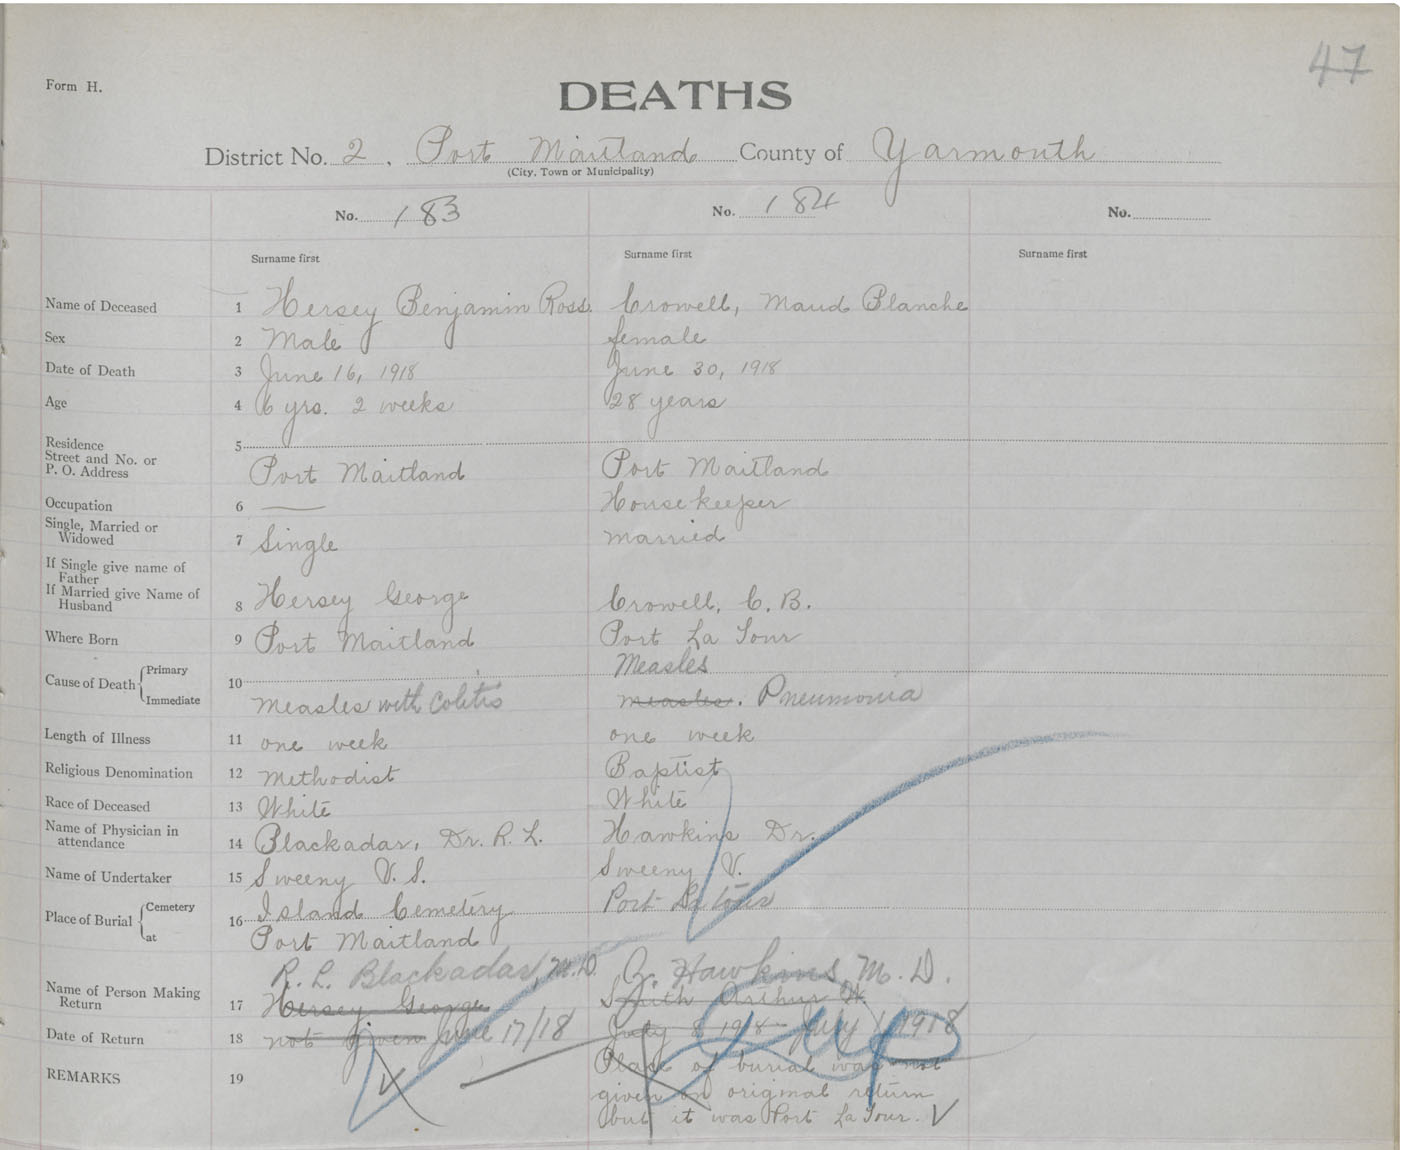 47
Form H.
DEATHS
District No. 2. Port Maitland County of Yarmouth
(City, Town or Municipality)
No. 183 No. 184 No.
Surname first Surname first Surname first
Name of Deceased 1 Hersey Benjamin Ross. Crowell, Maud Blanche
Sex 2 Male female
Date of Death 3 June 16, 1918 June 30, 1918
Age 4 6 yrs. 2 weeks 28 years
Residence 5
Street and No. or
P. O. Address Port Maitland Port Maitland
Occupation 6 — Housekeeper
Single, Married or
Widowed 7 Single married
If Single give name of
Father
If Married give Name of
Husband 8 Hersey George Crowell, C. B.
Where Born 9 Port Maitland Port La Tour
Cause of Death Primary 10 Measles
Immediate Measles with Colitis measles. Pneumonia
Length of Illness 11 one week one week
Religious Denomination 12 Methodist Baptist
Race of Deceased 13 White White
Name of Physician in
attendance 14 Blackadar, Dr. R. L. Hawkins Dr.
Name of Undertaker 15 Sweeny V. S. Sweeny V.
Place of Burial Cemetery 16 Island Cemetery Port La Tour
at Port Maitland
R. L. Blackadar, M.D. Z. Hawkins M. D.
Name of Person Making
Return 17 Hersey George Smith Arthur H.
Date of Return 18 not given June 17/18 July 8 1918 July 1 1918
REMARKS 19 Place of burial was not
given on original return
but it was Port La Tour.